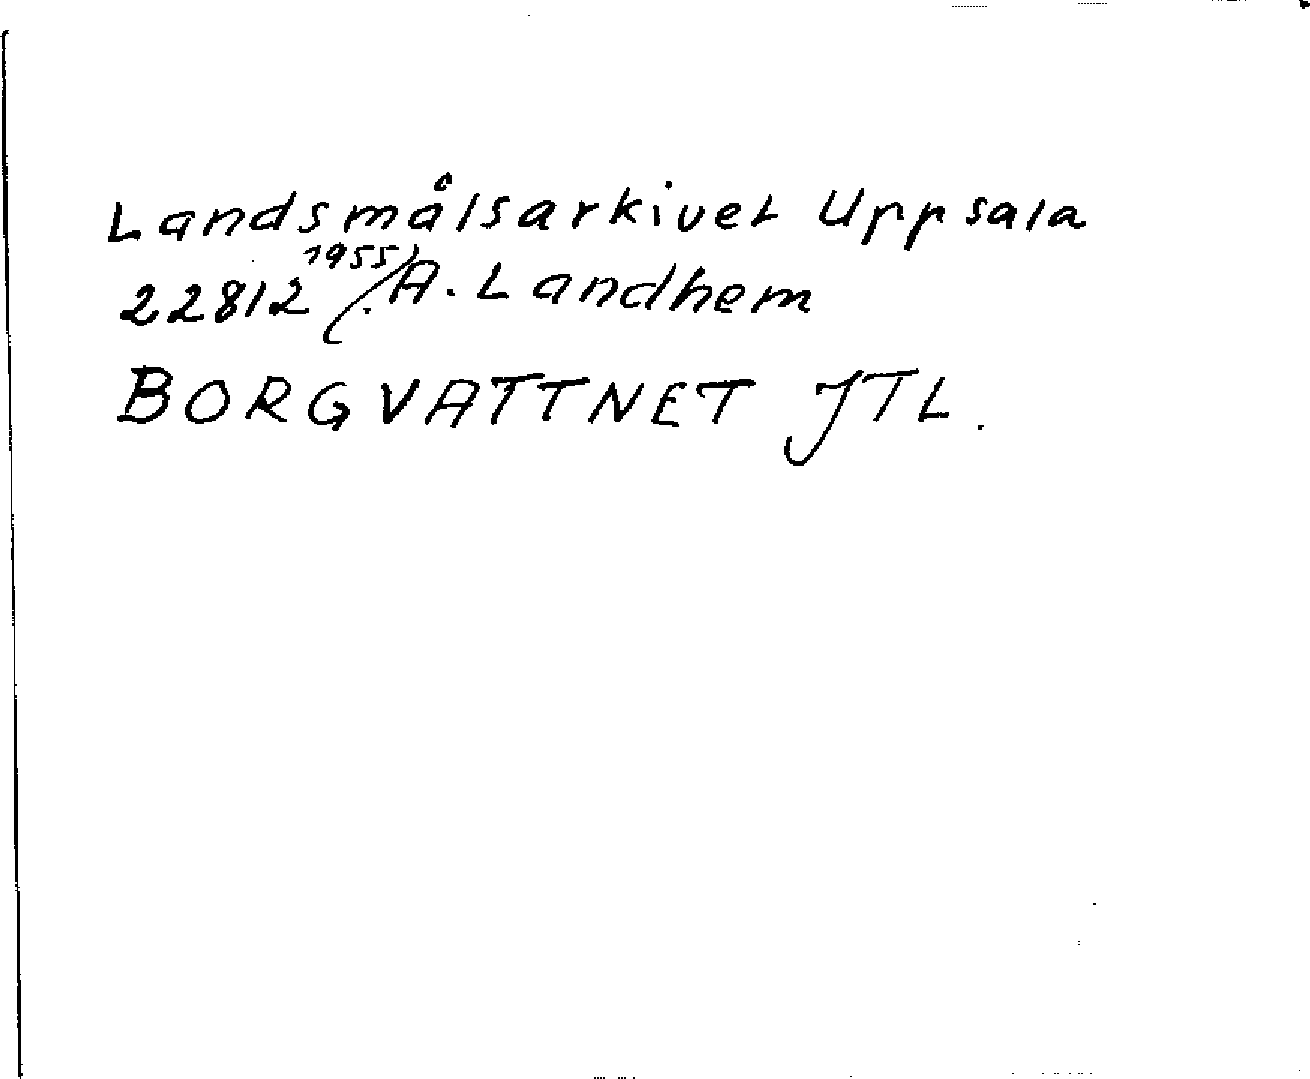 Landsmålsarkivet Uppsala
22812 1955 A. Landhem
BORGVATTNET JTL.